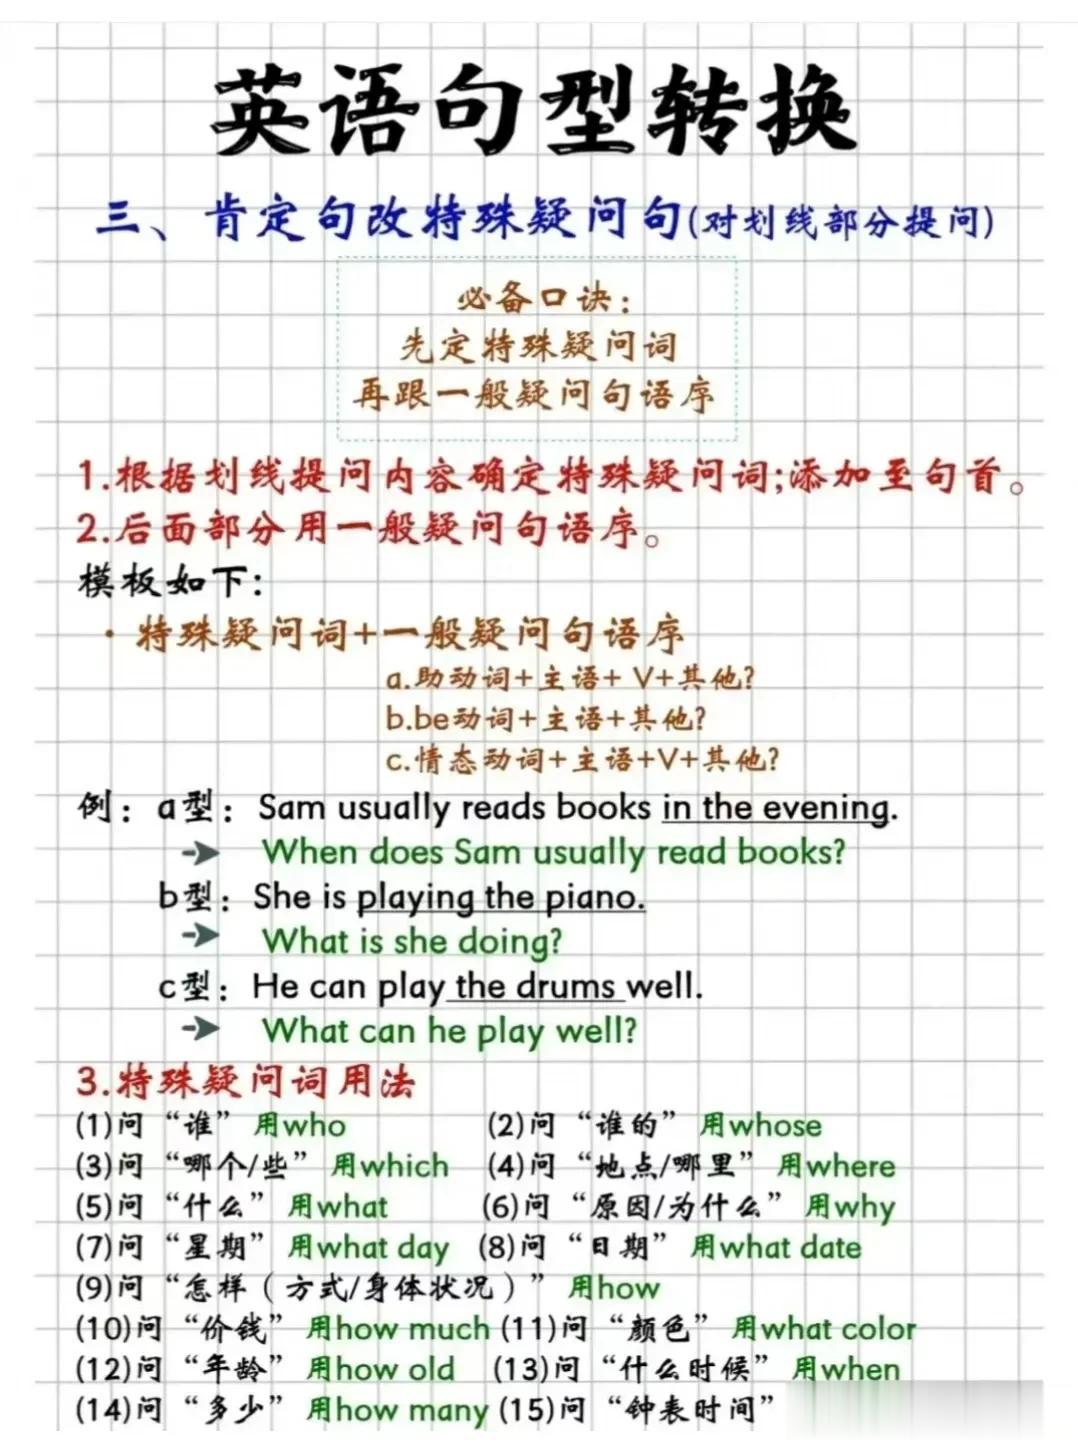 英语句型转换
三、肯定句改特殊疑问句(对划线部分提问)
必备口诀:
先定特殊疑问词
再跟一般疑问句语序
1.根据划线提问内容确定特殊疑问词;添加至句首。
2.后面部分用一般疑问句语序。
模板如下:
·特殊疑问词+一般疑问句语序
a.助动词+主语+ V+其他?
b.be动词+主语+其他?
c.情态动词+主语+V+其他?
例: a型: Sam usually reads books in the evening.
➔ When does Sam usually read books?
b型: She is playing the piano.
➔ What is she doing?
c型: He can play the drums well.
➔ What can he play well?
3.特殊疑问词用法
(1)问“谁” 用who (2)问“谁的” 用whose
(3)问“哪个/些” 用which (4)问“地点/哪里” 用where
(5)问“什么” 用what (6)问“原因/为什么” 用why
(7)问“星期” 用what day (8)问“日期” 用what date
(9)问“怎样(方式/身体状况)” 用how
(10)问“价钱” 用how much (11)问“颜色” 用what color
(12)问“年龄” 用how old (13)问“什么时候” 用when
(14)问“多少” 用how many (15)问“钟表时间”